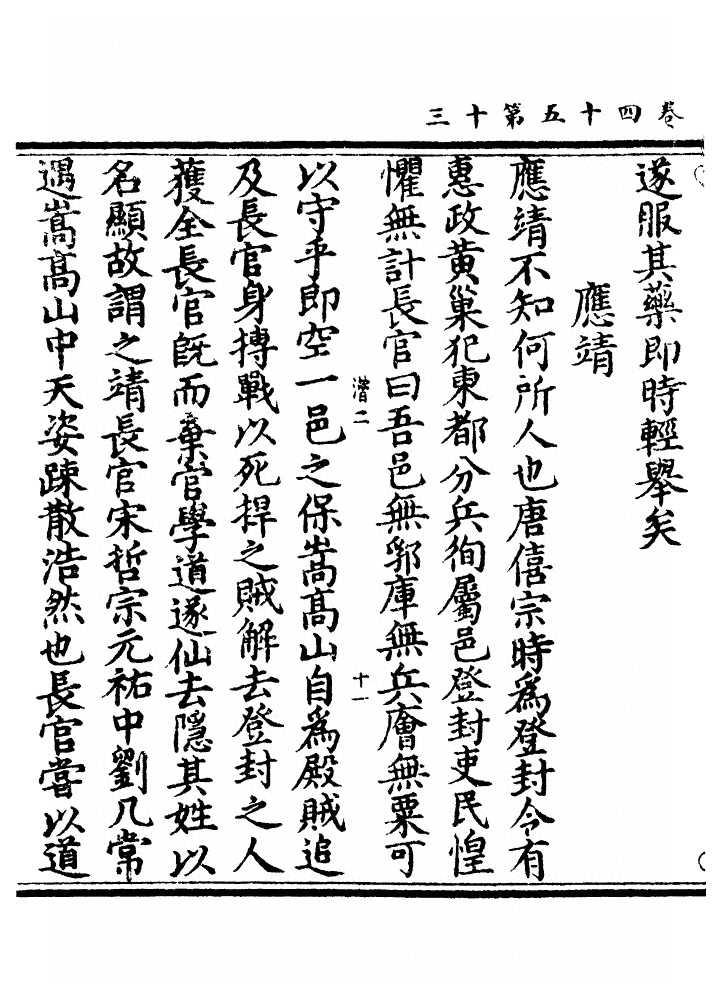 卷四十五第十三
遂服其藥即時輕舉矣
應靖
應靖不知何所人也唐僖宗時為登封令有
惠政黄巢犯東都分兵徇屬邑登封吏民惶
懼無計長官曰吾邑無郛庫無兵廥無粟可
潛二
十一
以守乎即空一邑之保嵩髙山自為殿賊追
及長官身摶戰以死捍之賊解去登封之人
獲全長官既而棄官學道遂仙去隱其姓以
名顯故謂之靖長官宋哲宗元祐中劉几常
遇嵩髙山中天姿踈散浩然也長官嘗以道